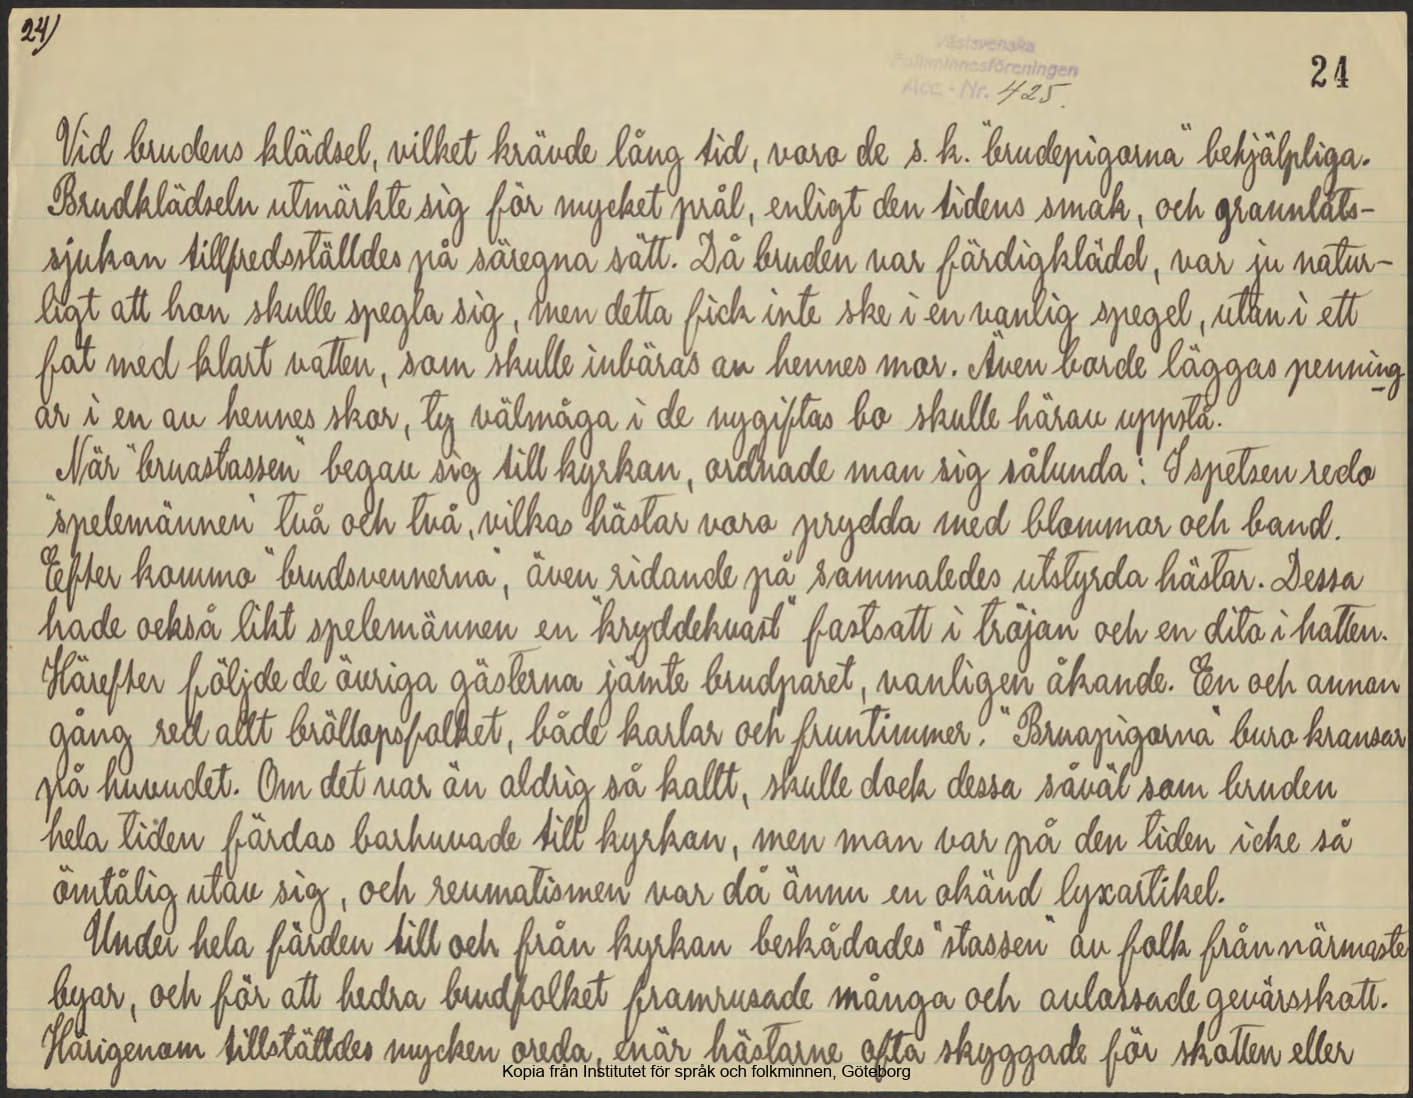 24)
Västsvenska
Folkminnesföreningen
Acc. - Nr. 425.
24
Vid brudens klädsel, vilket krävde lång tid, voro de s. k. "brudepigorna" behjälpliga.
Brudklädseln utmärkte sig för mycket prål, enligt den tidens smak, och grannlåts-
sjukan tillfredsställdes på säregna sätt. Då bruden var färdigklädd, var ju natur-
ligt att hon skulle spegla sig, men detta fick inte ske i en vanlig spegel, utan i ett
fat med klart vatten, som skulle inbäras av hennes mor. Även borde läggas penning
ar i en av hennes skor, ty välmåga i de nygiftas bo skulle härav uppstå.
När "bruastassen" begav sig till kyrkan, ordnade man sig sålunda: I spetsen redo
"spelemännen" två och två, vilkas hästar voro prydda med blommor och band.
Eefter kommo "brudsvennerna", även ridande på sammaledes utstyrda hästar. Dessa
hade också likt spelemännen en "kryddekvast" fastsatt i tröjan och en dito i hatten.
Härefter följde de övriga gästerna jämte brudparet, vanligen åkande. En och annan
gång red allt bröllopsfolket, både karlar och fruntimmer. "Bruapigorna" buro kransar
på huvudet. Om det var än aldrig så kallt, skulle dock dessa såväl som bruden
hela tiden färdas barhuvade till kyrkan, men man var på den tiden icke så
ömtålig utav sig, och reumatismen var då ännu en okänd lyxartikel.
Under hela färden till och från kyrkan beskådades "stassen" av folk från närmaste
byar, och för att hedra brudfolket framrusade många och avlossade gevärsskott.
Härigenom tillställdes mycken oreda, enär hästarne ofta skyggade för skotten eller
Kopia från Institutet för språk och folkminnen, Göteborg